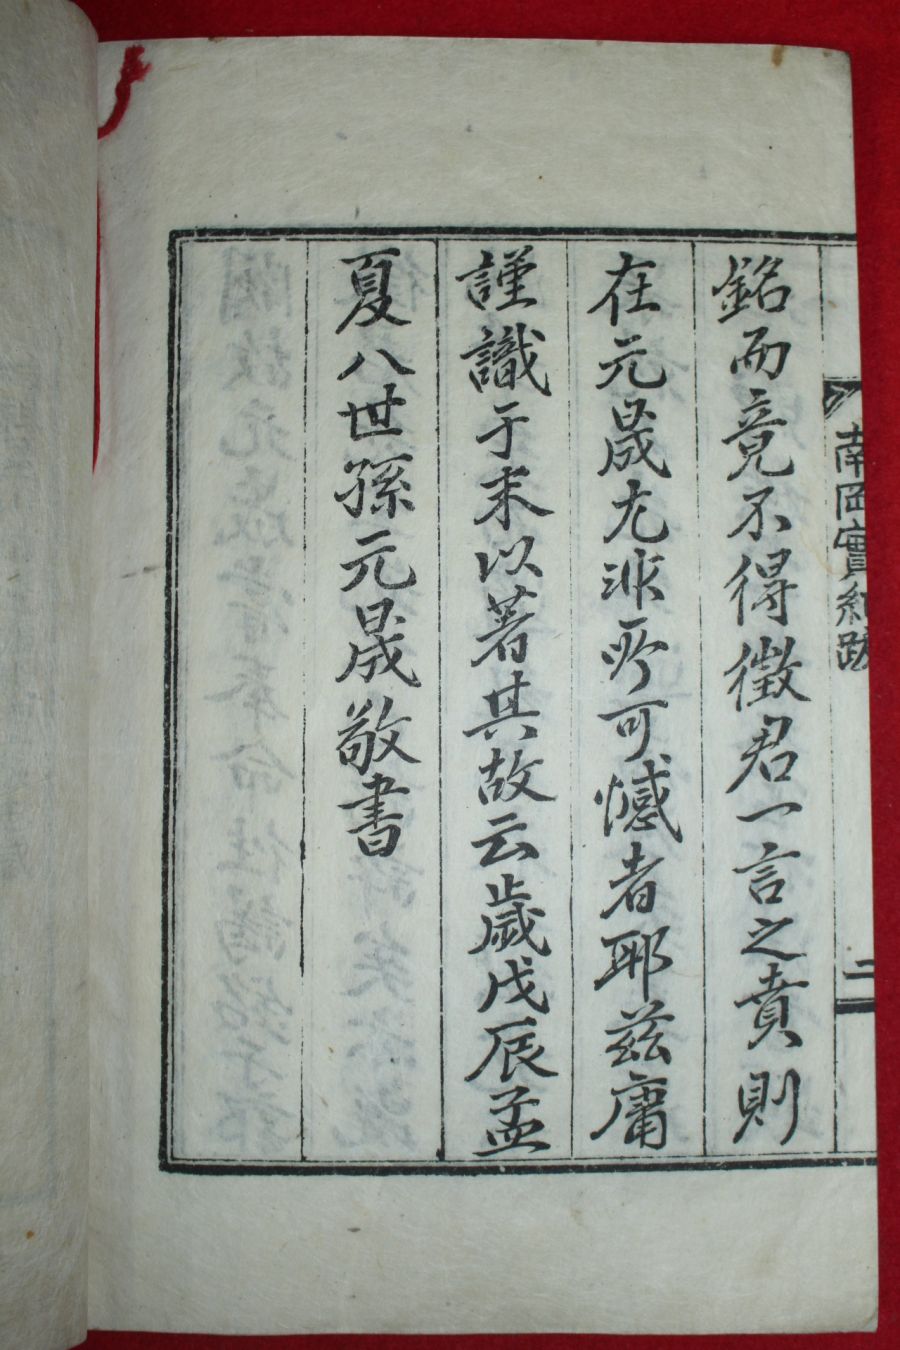 南岡實紀跋
二
銘而竟不得徵君一言之賁則
在元晟尤非所可憾者耶玆庸
謹識于末以著其故云歲戊辰孟
夏八世孫元晟敬書